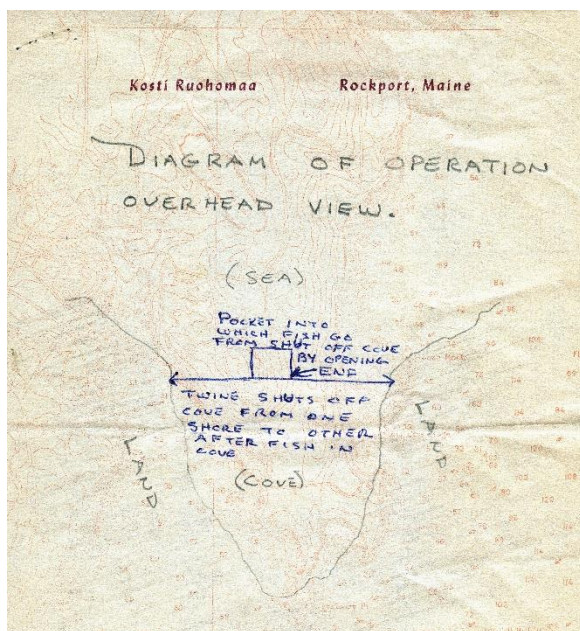 Kosti Ruohomaa Rockport, Maine
DIAGRAM OF OPERATION
OVERHEAD VIEW.
(SEA)
POCKET INTO
WHICH FISH GO
FROM SHUT OFF COVE
BY OPENING
END
TWINE SHUTS OFF
COVE FROM ONE
SHORE TO OTHER
AFTER FISH IN
COVE
LAND
LAND
(COVE)